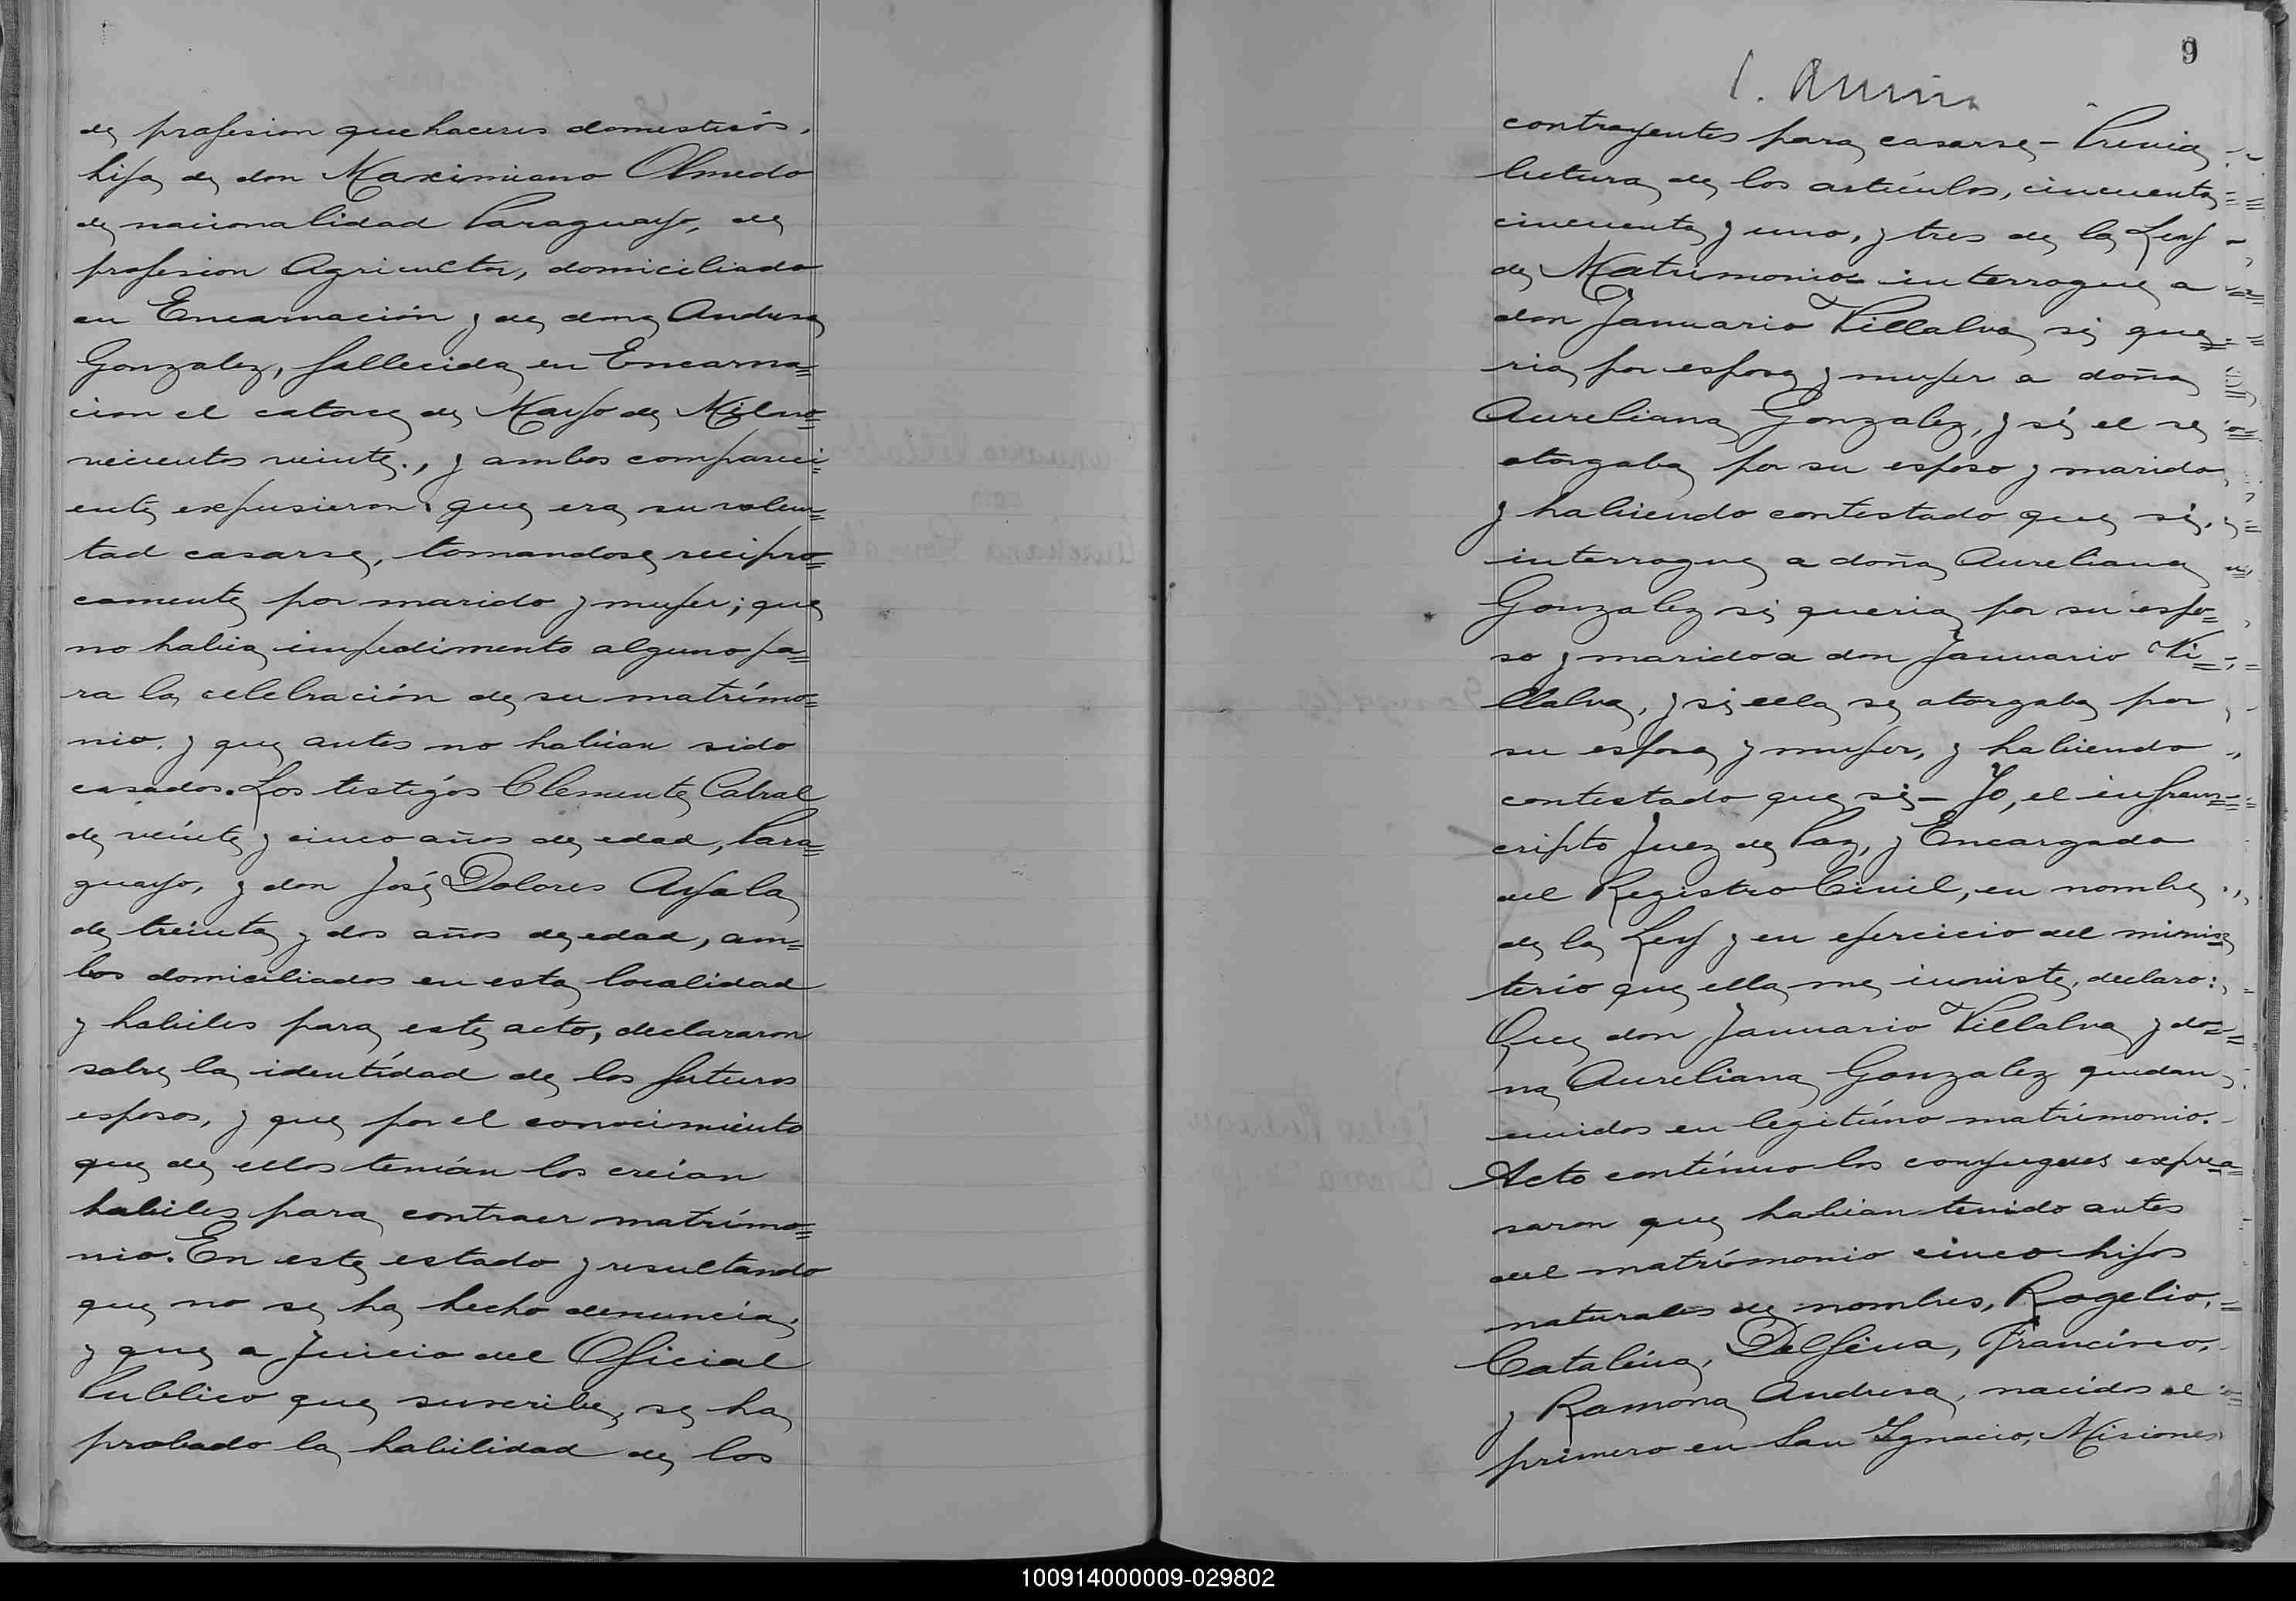 de profesion quehaceres domesticós,
hija de don Maximiano Olmedo
de nacionalidad Paraguayo, de
profesion Agricultor, domiciliado
en Encarnación y de dona Andresa
Gonzalez, fallecida en Encarna=
cion el catorce de Mayo de Milno=
vecientos veinte., y ambos compareci=
ente expusieron: que era su volun=
tad casarse, tomandose recipro=
camente por marido y mujer; que
no habia impedimento alguno pa=
ra la celebración de su matrimo=
nio, y que antes no habian sido
casados. Los testigós Clemente Cabral
de veinte y cinco años de edad, Para=
guayo, y don José Dolores Ayala
de treinta y dos años de edad, am=
bos domiciliados en esta localidad
y habiles para este acto, declararon
sobre la identidad de los futuros
esposos, y que por el conocimiento
que de ellos tenián los creian
habiles para contraer matrimo=
nio. En este estado y resultando
que no se ha hecho denuncia,
y que a Juicio del Oficial
Publico que suscribe, se ha
probado la habilidad de los
9
contrayentes para casarse,- Previa
lectura de los artículos, cincuenta
cincuenta y uno, y tres de la Ley
de Matrimonio interrogue a
don Januario Villalva si que=
ria por esposa y mujer a doña
Aureliana Gonzalez, y si el se
otorgaba por su esposo y marido
y habiendo contestado que si,
interrogue a doña Aureliana
Gonzalez si queria por su espo=
so y marido a don Januario Vi=
llalva, y si ella se otorgaba por
su esposa y mujer, y habiendo
contestado que si- Yo, el infrans=
cripto Juez de Paz, y Encargado
del Registro Civil, en nombre
de la Ley y en ejercicio del minis=
terio que ella me inviste, declaro:
Que don Januario Villalva y do=
na Aureliana Gonzalez quedan
unidos en legitimo matrimonio.
Acto contínuo los conyugues expre=
saron que habian tenido antes
del matrimonio cinco hijos
naturales de nombres, Rogelio,
Catalina, Delfina, Francisco,
y Ramona Andresa, nacidos el
primero en San Ignacio, Misiones
100914000009-029802